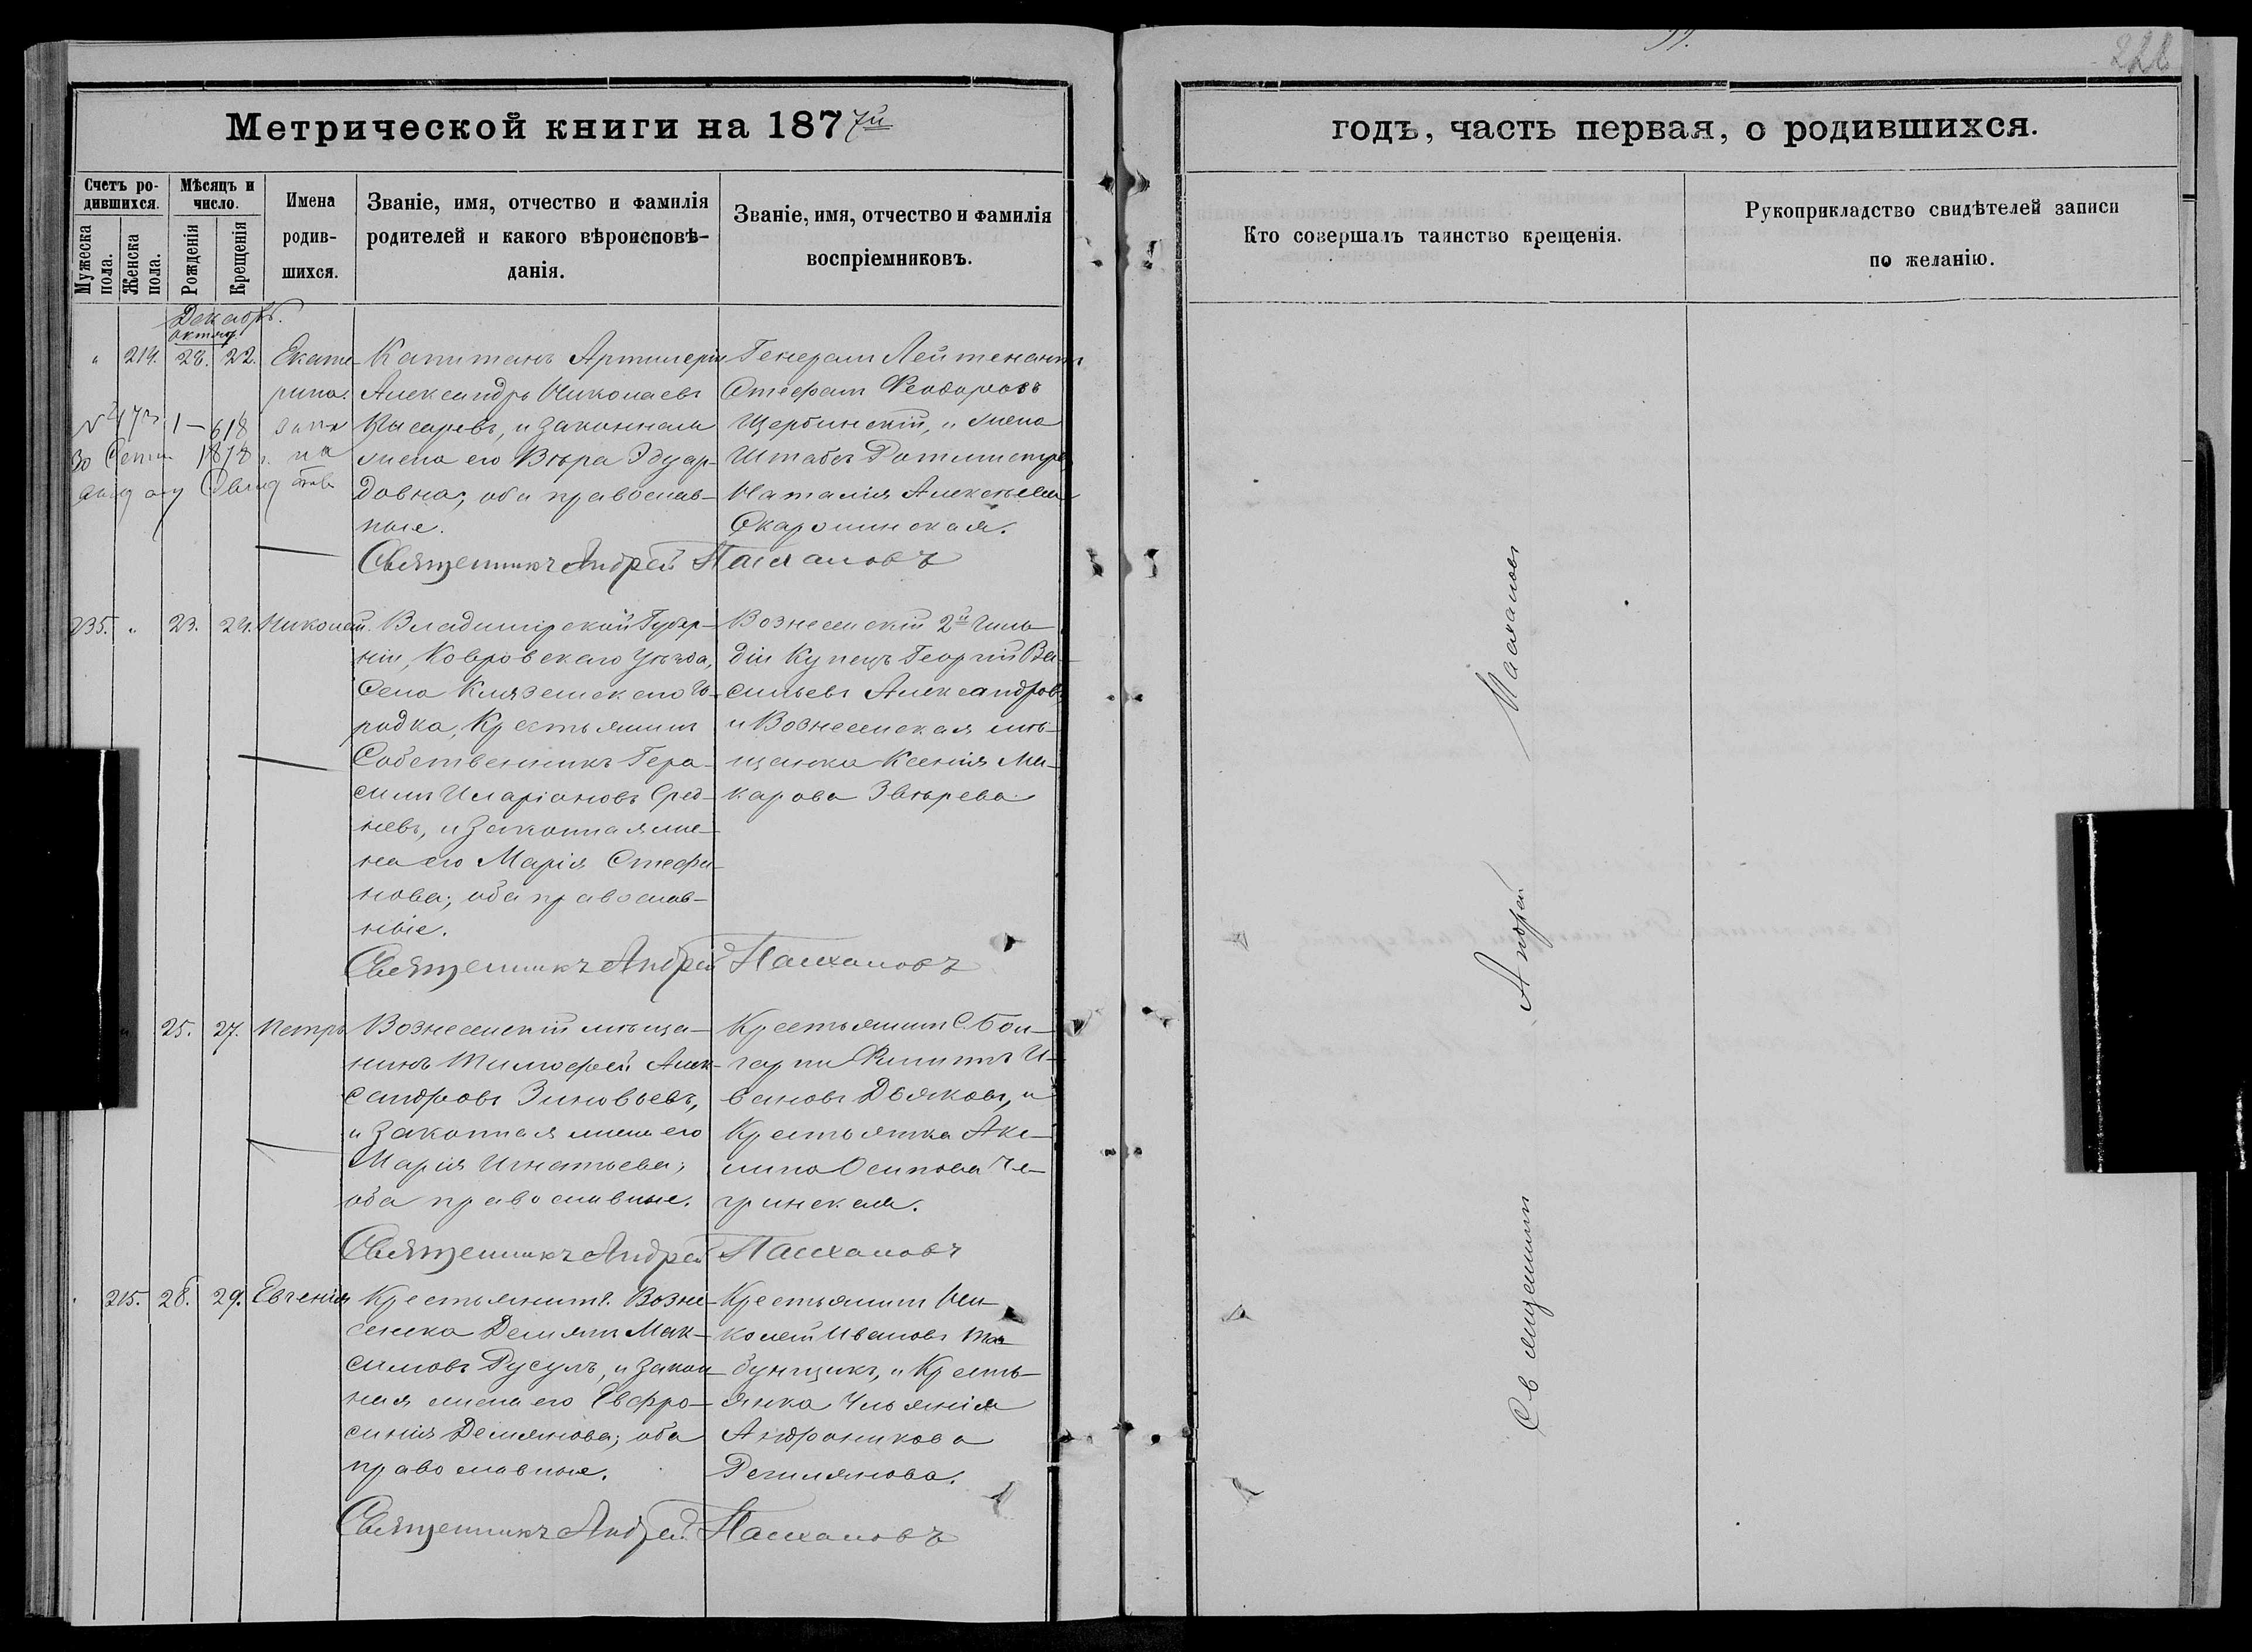 228
Метрической книги на 1877й
годъ, часть первая, о родившихся.
Счетъ родившихся.
Мужеска пола.
Женска пола.
Мѣсяцъ и число.
Рожденія
Крещенія
Имена родившихся.
Званіе, имя, отчество и фамилія
родителей и какого вѣроисповѣ-
данія.
Званіе, имя, отчество и фамилія
воспріемниковъ.
Кто совершалъ таинство крещенія.
Рукоприкладство свидѣтелей записи
по желанію.
Декабрь.
октяб.
" 214. 28. 22. Екате-
рина.
Капитанъ Артилеріи
Александръ Николаевъ
и законная
жена его Вѣра Эдуар-
довна; оба православ-
ные.
Генералъ Лейтенантъ
Стефанъ Феодоровъ
Щербинскій, и жена
Штабсъ Ротмистра
Наталія Алексѣева
30 Сент. 1878 г.
Священникъ Андрей Пасхаловъ
235. " 23. 24. Николай.
Владимірской Губер-
ніи, Ковровскаго уѣзда,
Села Клязменскаго Го-
родка, Крестьянинъ
Собственникъ Гера-
симъ Иларіоновъ Сред-
невъ, и законная же-
на его Марія Стефа-
нова; оба православ-
ніе.
Вознесенскій 2й Гиль-
діи Купецъ Георгій Ва-
сильевъ Александровъ,
и Вознесенская мѣ-
щанка Ксенія Ма-
карова Звѣрева
Священникъ Андрей Пасхаловъ
25. 27. Петръ
Вознесенскій мѣща-
нинъ Тимофей Алек-
сандровъ Зиновьевъ,
и законная жена его
Марія Игнатьева;
оба православные.
Крестьянинъ С. Бол-
гарки Филиппъ И-
вановъ Дьяковъ, и
Крестьянка Аке-
лина Осипова Че-
гринская.
Священникъ Андрей Пасхаловъ
215. 28. 29. Евгенія
Крестьянинъ С. Возне-
сенска Деміянъ Мак-
симовъ Русулъ, и закон-
ная жена его Евфро-
синія Деміянова; оба
православные.
Крестьянинъ Ни-
колай Ивановъ Та-
бунщикъ, и Кресть-
янка Ульянія
Андроникова
Деміянова.
Священникъ Андрей Пасхаловъ
Священникъ Андрей Пасхаловъ